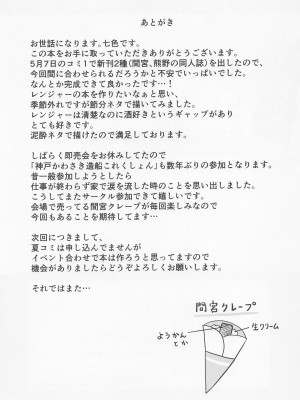 あとがき
お世話になります。七色です。
この本をお手に取っていただきありがとうございます。
5月7日のコミ1で新刊2種（間宮、熊野の同人誌）を出したので、
今回間に合わせられるだろうかと不安でいっぱいでした。
なんとか完成できて良かったです…！
レンジャーの本を作りたいなぁと思い、
季節外れですが節分ネタで描いてみました。
レンジャーは清楚なのに酒好きというギャップがあり
とても好きです。
泥酔ネタで描けたので満足しております。
しばらく即売会をお休みしてたので
「神戸かわさき造船これくしょん」も数年ぶりの参加となります。
昔一般参加しようとしたら
仕事が終わらず家で涙を流した時のことを思い出しました。
こうしてまたサークル参加できて嬉しいです。
会場で売ってる間宮クレープが毎回楽しみなので
今回もあることを期待してます…
次回につきまして、
夏コミは申し込んでませんが
イベント合わせで本は作ろうと思ってますので
機会がありましたらどうぞよろしくお願いします。
それではまた…
間宮クレープ
ようかん
とか
生クリーム